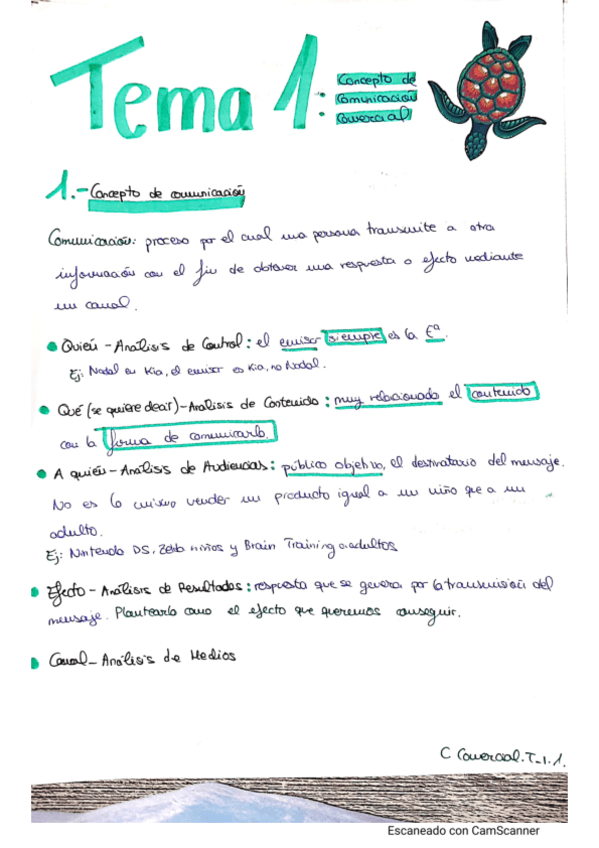 Tema 1:
Concepto de
Comunicación
Comercial
1.- Concepto de comunicación
Comunicación: proceso por el cual una persona transmite a otra
información con el fin de obtener una respuesta o efecto mediante
un canal.
Quién - Análisis de Control: el emisor siempre es la Eª.
Ej: Nadal en Kia, el emisor es Kia, no Nadal.
Qué (se quiere decir) - Análisis de Contenido: muy relacionado el contenido
con la forma de comunicarlo.
A quién - Análisis de Audiencias: público objetivo, el destinatario del mensaje.
No es lo mismo vender un producto igual a un niño que a un
adulto.
Ej: Nintendo DS, Zelda niños y Brain Training a adultos
Efecto - Análisis de Resultados: respuesta que se genera por la transmisión del
mensaje. Plantearlo como el efecto que queremos conseguir.
Canal - Análisis de Medios
C Comercial. T-1. 1.
Escaneado con CamScanner